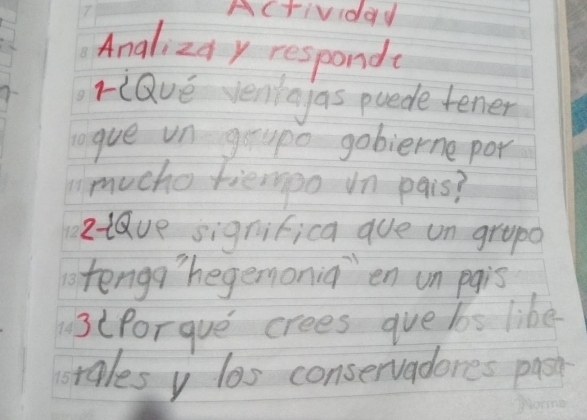 Actividad
Analiza y responde
1-¿Qué ventajas puede tener
que un grupo gobierne por
mucho tiempo un pais?
2-¿Que significa que un grupo
tenga "hegemonia" en un pais
3¿Por qué crees que los libe-
rales y los conservadores pasa
Norma